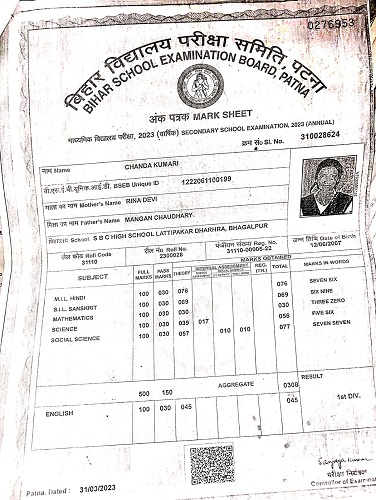 0276953
बिहार विद्यालय परीक्षा समिति, पटना
BIHAR SCHOOL EXAMINATION BOARD, PATNA
अंक पत्रक MARK SHEET
माध्यमिक विद्यालय परीक्षा, 2023 (वार्षिक) SECONDARY SCHOOL EXAMINATION, 2023 (ANNUAL)
क्रम सं० Sl. No. 310028624
नाम Name CHANDA KUMARI
बी.एस.ई.बी यूनिक आई.डी. BSEB Unique ID 1222061100199
माता का नाम Mother's Name RINA DEVI
पिता का नाम Father's Name MANGAN CHAUDHARY
विद्यालय School S B C HIGH SCHOOL LATTIPAKAR DHARHRA, BHAGALPUR
रौल कोड Roll Code रौल नं० Roll No. पंजीयन संख्या Reg. No. जन्म तिथि Date of Birth
31110 2300028 31110-00005-22 12/06/2007
MARKS OBTAINED
SUBJECT FULL MARKS PASS MARKS THEORY INTERNAL ASSESSMENT REG. (TH.) TOTAL MARKS IN WORDS
M.I.L. HINDI 100 030 076 076 SEVEN SIX
S.I.L. SANSKRIT 100 030 069 069 SIX NINE
MATHEMATICS 100 030 030 030 THREE ZERO
SCIENCE 100 030 039 017 056 FIVE SIX
SOCIAL SCIENCE 100 030 057 010 010 077 SEVEN SEVEN
500 150 AGGREGATE 0308 RESULT
1st DIV.
ENGLISH 100 030 045 045
Patna, Dated : 31/03/2023
Sanjay Kumar
परीक्षा नियंत्रक
Controller of Examinat